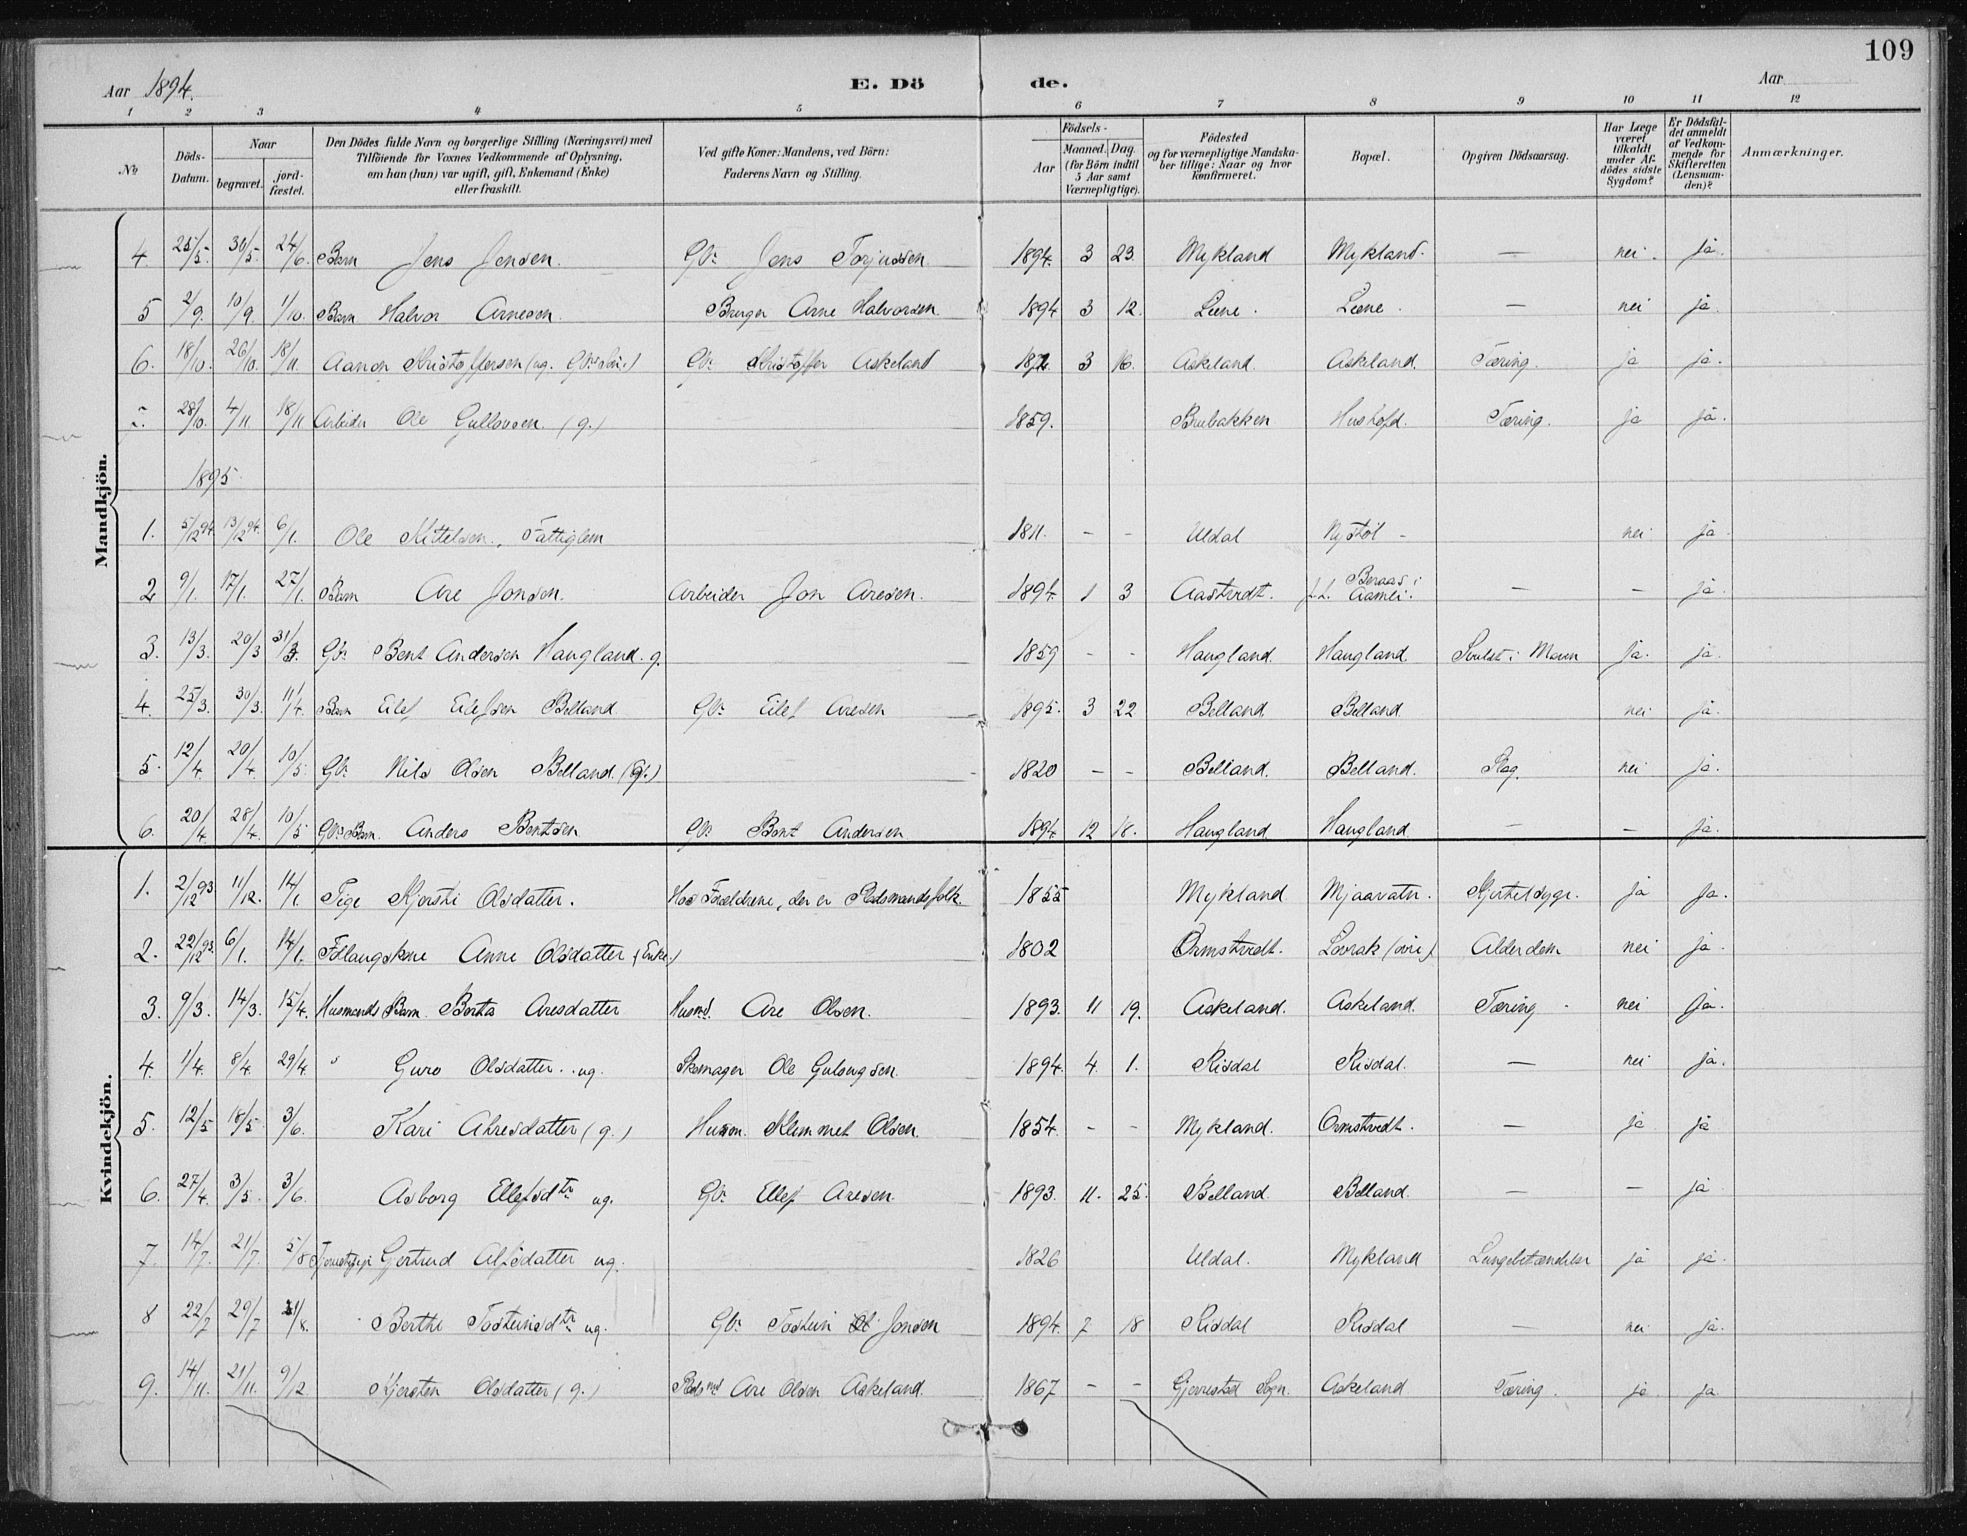 109
Aar 1894. E. Dö de. Aar
1 2 3 4 5 6 7 8 9 10 11 12
No
Döds-Datum.
Naar
begravet. jordfæstet.
Den Dödes fulde Navn og borgerlige Stilling (Næringsvei) med
Tilföiende for Voxnes Vedkommende af Oplysning,
om han (hun) var ugift, gift, Enkemand (Enke)
eller fraskilt.
Ved gifte Koner: Mandens, ved Börn:
Faderens Navn og Stilling.
Födsels-
Aar Maaned. Dag.
(for Börn indtil
5 Aar samt
Værnepligtige).
Födested
og for værnepligtige Mandskaber tillige: Naar og hvor
Konfirmeret.
Bopæl.
Opgiven Dödsaarsag.
Har Læge
været
tilkaldt
under Afdödes sidste
Sygdom?
Er Dödsfaldet anmeldt
af Vedkommende for
Skifteretten
(Lensmanden)?
Anmærkninger.
Mandkjön.
4. 25/5. 30/5. 24/6. Barn Jens Jensen. Gbr. Jens Torjussen 1894. 3 23. Mykland Mykland. — nei. ja.
5 2/9. 10/9. 1/10. Barn Halvor Arnesen. Bruger Arne Halvorsen. 1894 3 12. Liene. Liene. — nei ja.
6. 18/10. 26/10. 18/11. Aanon Kristoffersen (ug. Gbr. Sön.) Gbr. Kristoffer Askeland 3 16. Askeland. Askeland. Tæring. ja ja.
28/10. 4/11 18/11 Arbeider Ole Gullovsen (g.) 1859. Brubakken Tæring. ja ja.
1895
1. 5/12 94 13/12 94. 6/1. Ole Kittelsen, Fattiglem 1811. - - Uldal Nystöl - nei ja
2 9/1. 17/1. 27/1. Barn Are Jonsen. Arbeider Jon Aresen. 1894. 1 3 Aastvedt. Beraas i Aamli. — - ja.
3. 13/3. 20/3 31/3. Gbr. Bent Andersen Haugland. g. 1859 - - Haugland. Haugland. i Maven ja. ja.
4. 25/3. 30/3. 11/4. Barn Eilef Eilefsen Belland Gbr. Eilef Aresen 1895. 3 22 Belland. Belland. nei ja.
5. 12/4. 20/4. 10/5. Gbr. Nils Olsen Belland. (g.) 1820 - - Belland. Belland. Slag. nei ja.
6. 20/4. 28/4. 10/5 Gbr. Barn. Anders Bentsen Gbr. Bent Andersen 1894 12 18. Haugland Haugland — - ja.
Kvindekjön.
1. 2/12 93 11/12. 14/1. Pige Kjersti Olsdatter. Hos Forældrene, der er Pladsmandsfolk. 1855 Mykland Mjaavatn. Hjertesygd. ja ja.
2. 22/12 93. 6/1. 14/1. Anne Olsdatter (Enke.) 1802 Ormstvedt. Lovrak (övre). Alderdom nei ja.
3. 9/3. 14/3. 15/4. Husmands Barn. Berta Aresdatter Husmd. Are Olsen. 1893. 11 19. Askeland. Askeland. Tæring nei ja.
4. 1/4. 8/4. 29/4. " Guro Olsdatter. ug. Skomager Ole Gulougsen. 1894. 4. 1. Risdal Risdal. — nei ja.
5. 12/5 18/5. 3/6. Kari Alvesdatter (g.) Husm. Klemmet Olsen. 1854. - - Mykland. Ormstvedt. — ja ja
6. 27/4. 3/5. 3/6. Asborg Ellefsdtr. ug. Gbr. Ellef Aresen 1893. 11. 25. Belland. Belland. — — ja
7. 14/7. 21/7. 5/8 Tjenestepige Gjertrud Alfsdatter ug. 1826 Uldal. Mykland Lungebetændelse ja ja.
8 22/7 29/7 Berthe Tosteinsdtr. ug. Gbr. Tostein Jonsen 1894. 7 18 Risdal Risdal — nei ja.
9. 14/11. 21/11. 9/12. Kjersten Olsdatter (g.) Pladsmd Are Olsen Askeland. 1867 - - Gjerrestad Sogn. Askeland Tæring. ja. ja.